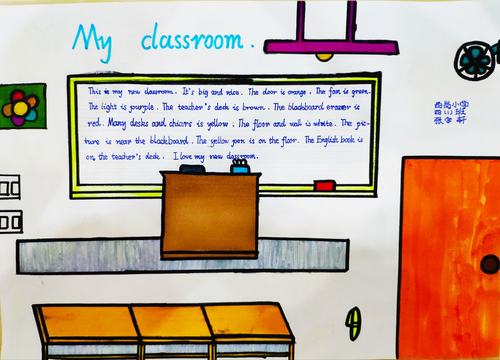 My classroom.
This is my new classroom. It's big and nice. The door is orange. The fan is green.
The light is purple. The teacher's desk is brown. The blackboard eraser is
red. Many desks and chairs is yellow. The floor and wall is white. The pic-
ture is near the blackboard. The yellow pen is on the floor. The English book is
on the teacher's desk. I love my new classroom.
小学
班